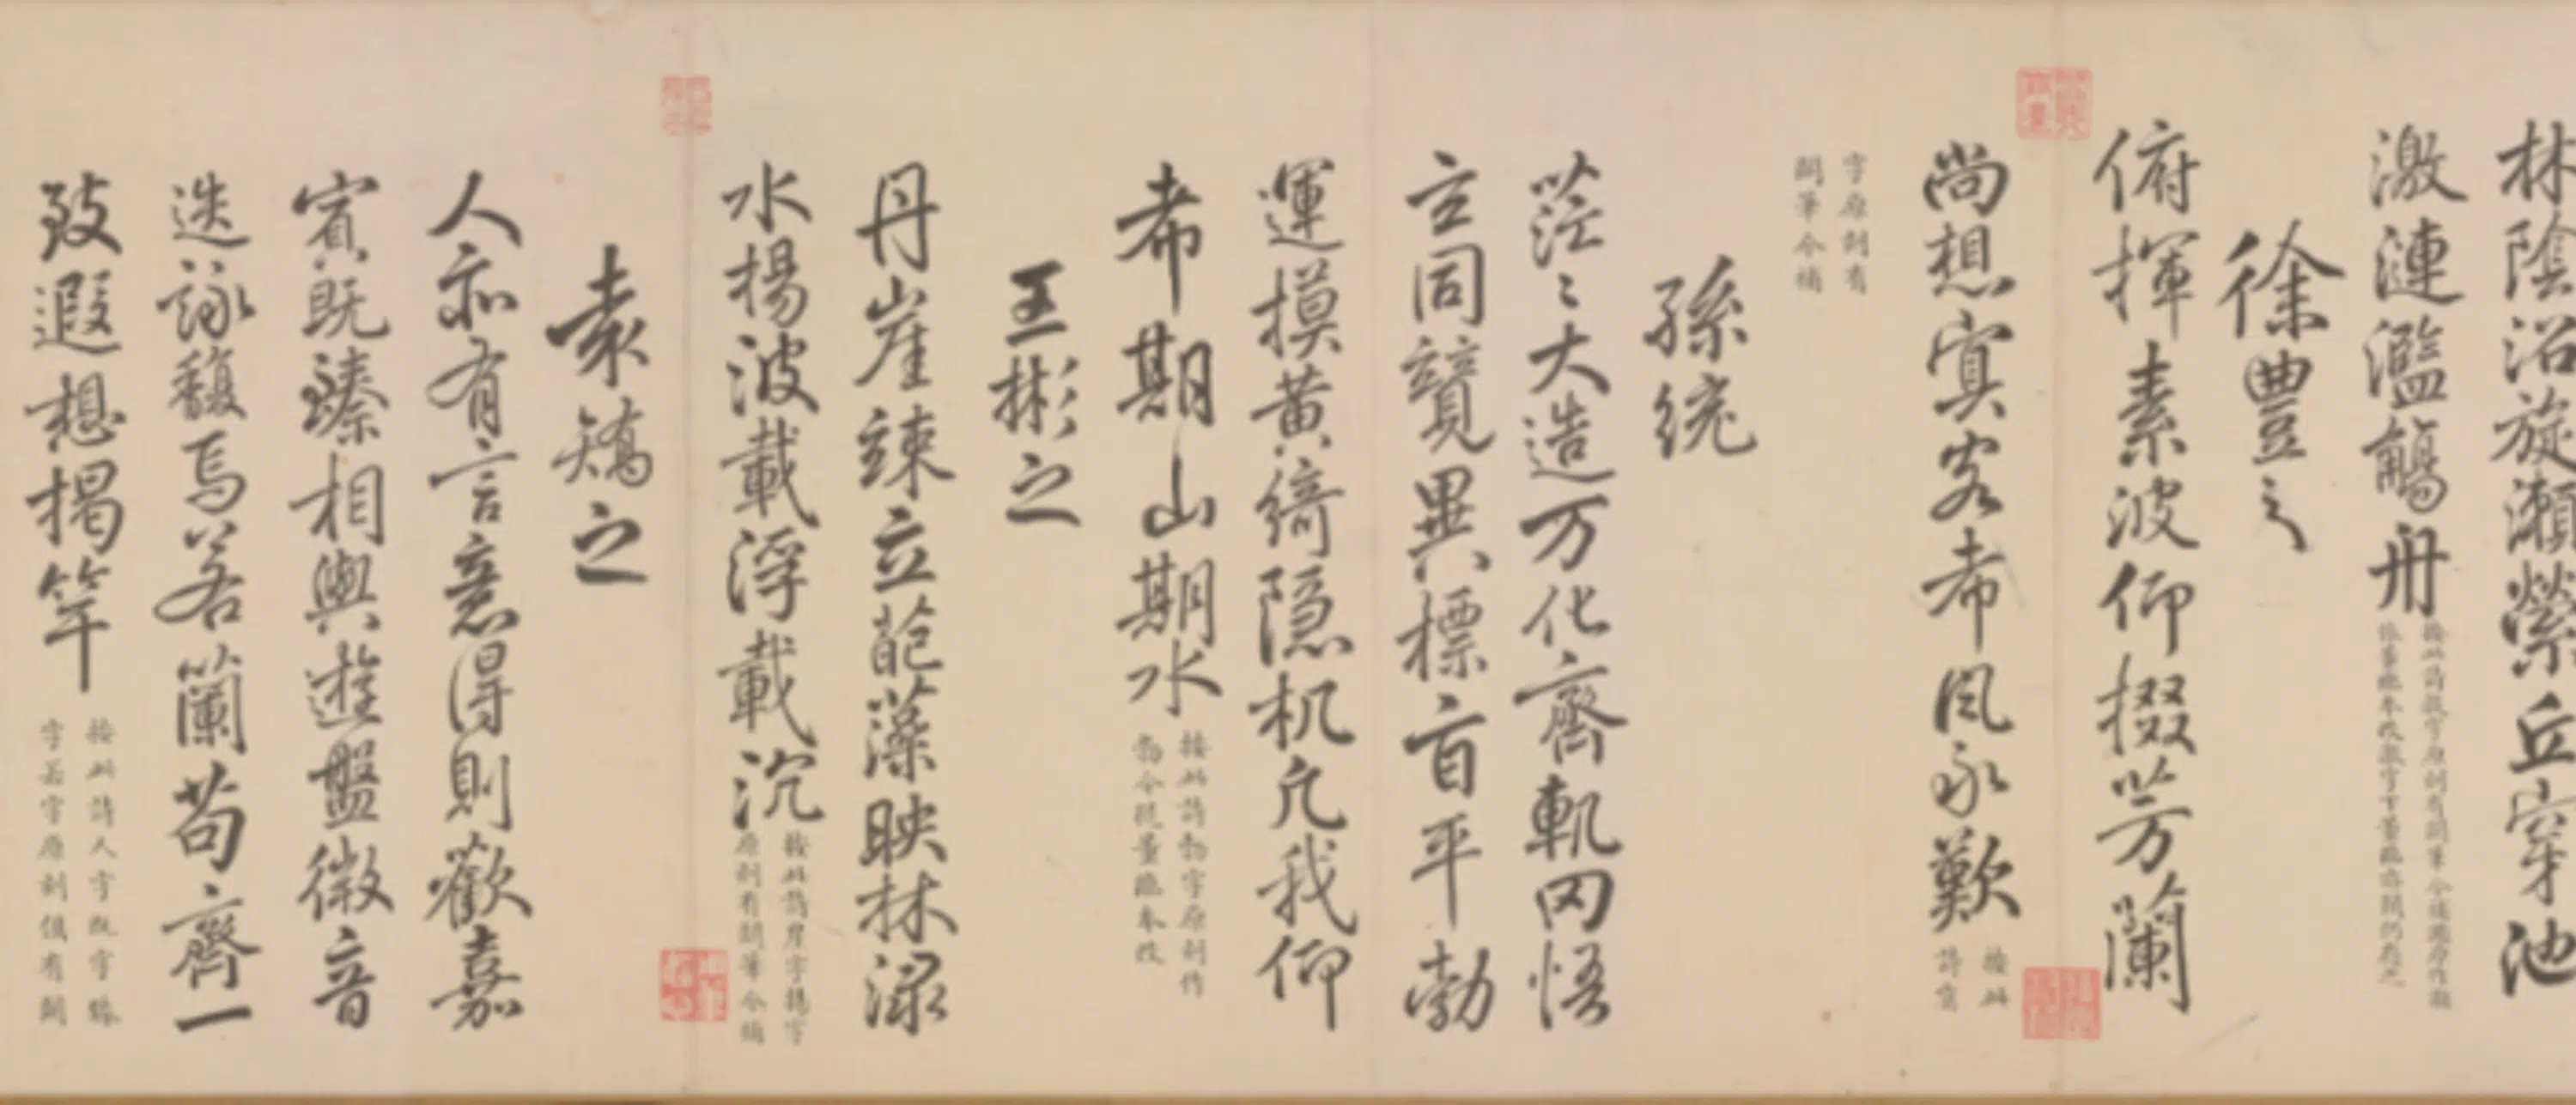 林陰沿旋瀨縈丘穿池
激漣濫觴舟
徐豊之
俯揮素波仰掇芳蘭
尚想寘客希風永歎
按此
詩寘
字原刻有
闕筆今補
孫統
茫〻大造万化齊軌罔悟
玄同競異標旨平勃
運摸黃綺隱机凡我仰
希期山期水
按此詩勃字原刻作
勃今從董臨本改
王彬之
丹崖竦立葩藻映林淥
水揚波載浮載沉
按此詩崖字揚字
原刻有闕筆今補
袁矯之
人亦有言意得則歡嘉
賓既臻相與遊盤微音
迭詠馥焉若蘭苟齊一
致遐想揭竿
按此詩人字既字臻
字若字原刻俱有闕